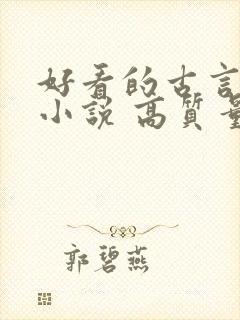 好看的古言
小說 高質量
郭碧燕